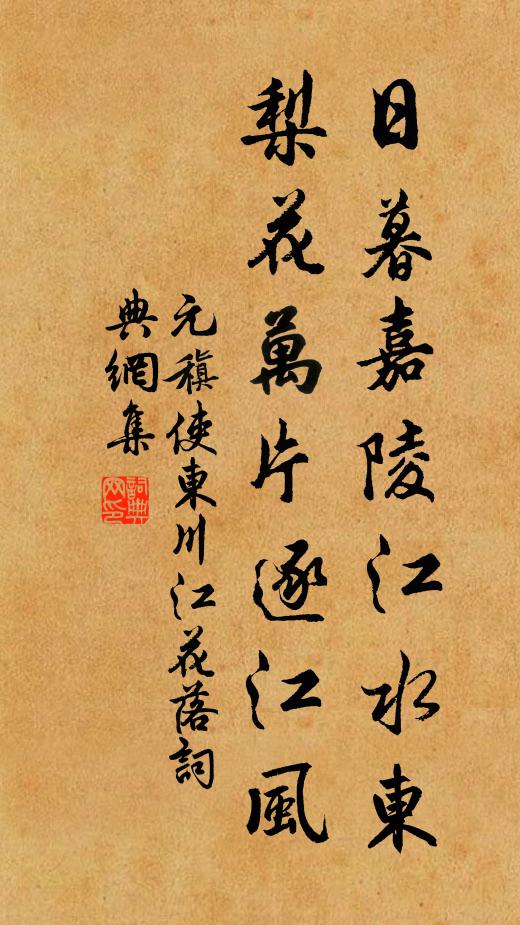 日暮嘉陵江水東
梨花萬片逐江風
元稹使東川江花落詞
典網集
詞典網印